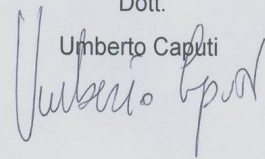 Dott.
Umberto Caputi
Umberto Caputi